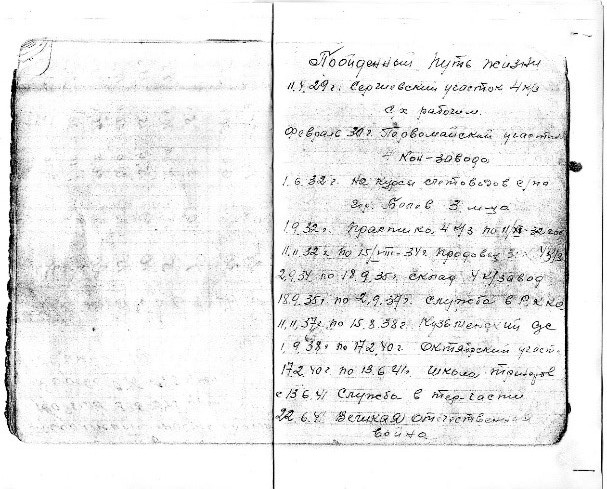 Пройденный путь жизни
11.4.29г. Сергиевский участок 4 к/з
с х рабочим.
Февраль 30г. Первомайский участок
Кон-завода
1.6.32г. на курсы счетоводов с/по
3 м-ца
1.9.32г. Практика 4 к/з по
11.11.32г. по 15/VIII-34г. продавец
2.9.34 по 18.9.35г. склад 4 к/завод
18.9.35г. по 2.9.37г. Служба в РККА
11.11.37г. по 15.8.38г.
1.9.38г. по 17.2.40г. участ.
17.2.40г по 13.6.41г. школа
с 13.6.41 Служба в
22.6.41 Великая отечественная
война